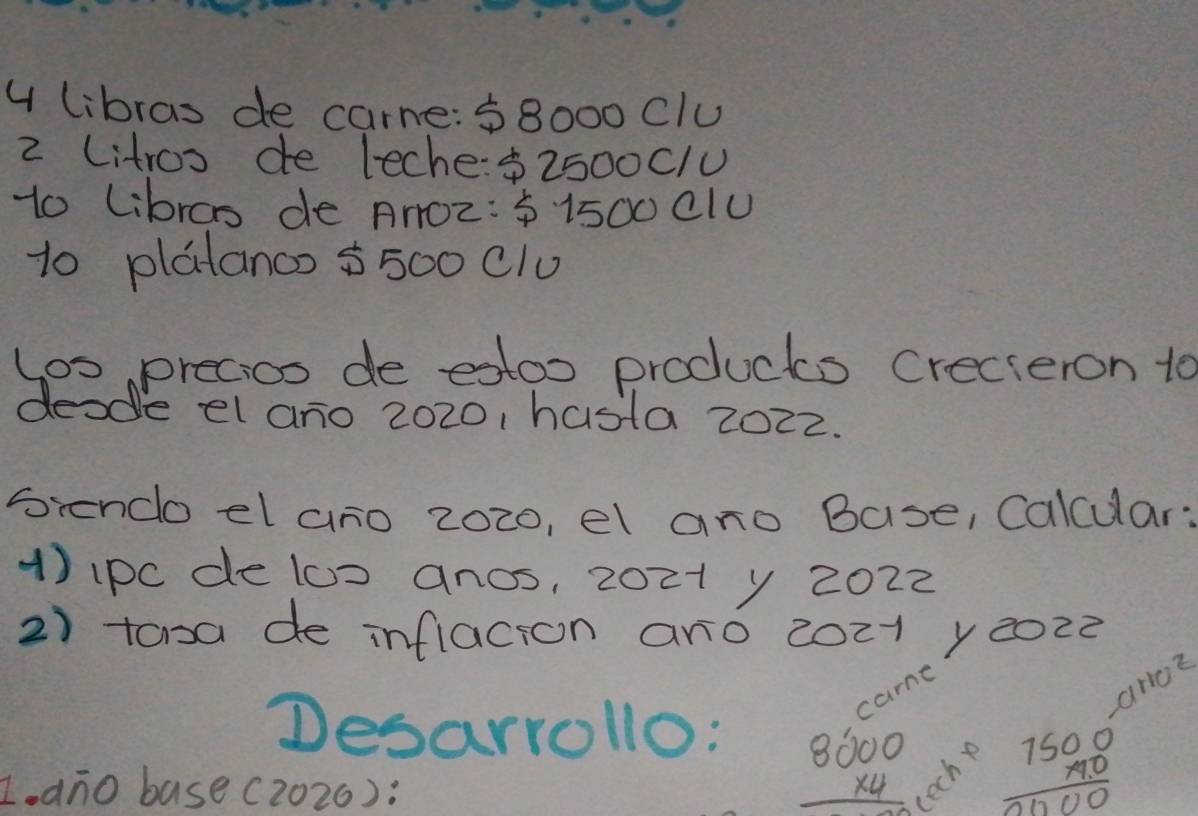 4 libras de carne: $ 8000 c/u
2 Litros de leche: $ 2500 c/u
10 libras de Arroz: $ 1500 c/u
10 plátanos $ 500 c/u
Los precios de estos productos crecieron 10
desde el año 2020, hasta 2022.
Siendo el año 2020, el ano Base, calcular:
1) ipc de los anos, 2021 y 2022
2) tasa de inflacion año 2021 y 2022
Desarrollo:
carne
arroz
8000
x4
leche
1500
x10
1. año base (2020):